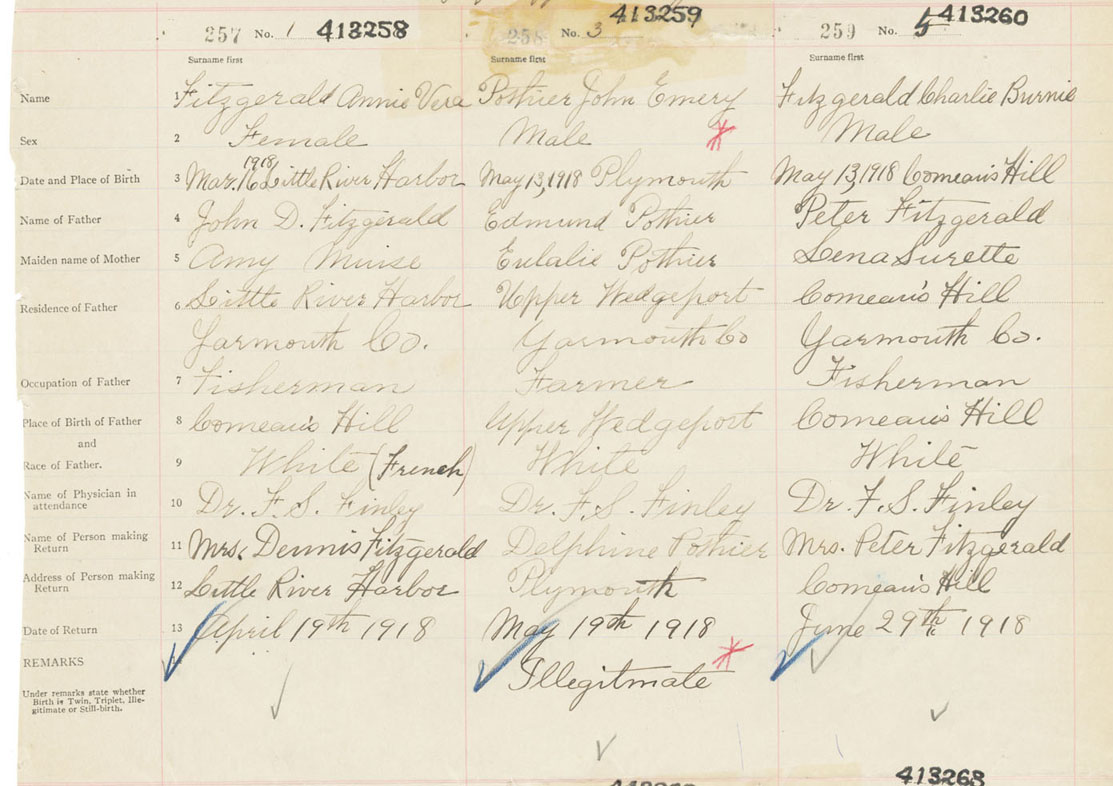 257 No. 1 413258 258 No. 3 413259 259 No. 5 413260
Surname first Surname first Surname first
Name 1 Fitzgerald Annie Vera Pothier John Emery Fitzgerald Charlie Burnie
Sex 2 Female Male Male
1918
Date and Place of Birth 3 Mar. Little River Harbor May 13, 1918 Plymouth May 13, 1918 Comeau's Hill
Name of Father 4 John D. Fitzgerald Edmund Pothier Peter Fitzgerald
Maiden name of Mother 5 Amy Muise Eulalie Pothier Lena Surette
Residence of Father 6 Little River Harbor Upper Wedgeport Comeau's Hill
Yarmouth Co. Yarmouth Co Yarmouth Co.
Occupation of Father 7 Fisherman Farmer Fisherman
Place of Birth of Father 8 Comeau's Hill Upper Wedgeport Comeau's Hill
and
Race of Father. 9 White (French) White White
Name of Physician in
attendance 10 Dr. F. S. Finley Dr. F. S. Finley Dr. F. S. Finley
Name of Person making
Return 11 Mrs. Dennis Fitzgerald Delphine Pothier Mrs. Peter Fitzgerald
Address of Person making
Return 12 Little River Harbor Plymouth Comeau's Hill
Date of Return 13 April 19th 1918 May 19th 1918 June 29th 1918
REMARKS Illegitmate
Under remarks state whether
Birth is Twin, Triplet, Ille-
gitimate or Still-birth.
413263